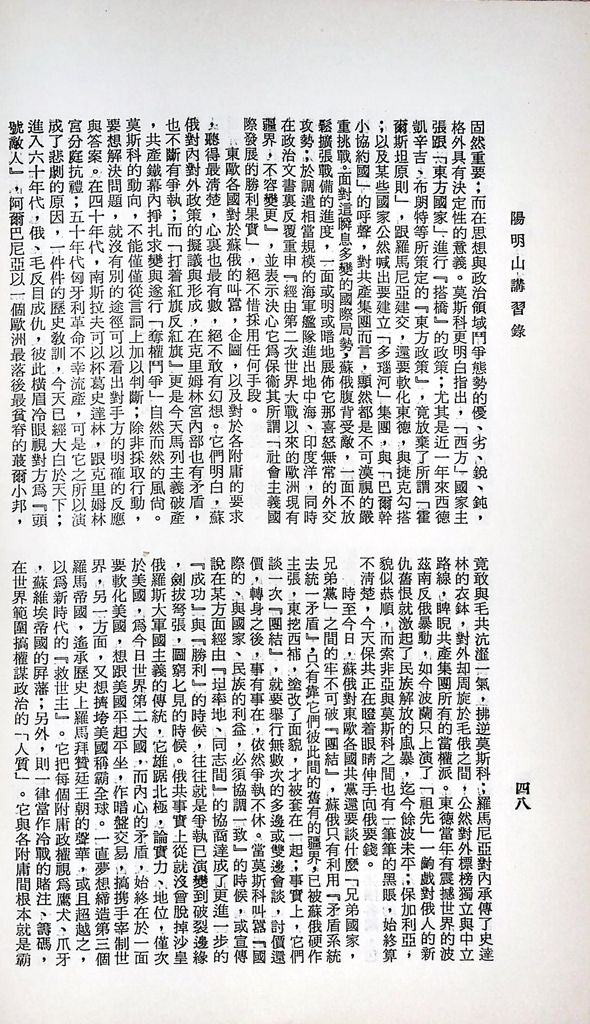 陽明山講習錄
四八
固然重要；而在思想與政治領域鬥爭態勢的優、劣、銳、鈍，
格外具有決定性的意義。莫斯科更明白指出，「西方」國家主
張跟「東方國家」進行『搭橋』的政策；尤其是近一年來西德
凱辛吉、布朗特等所策定的『東方政策』，竟放棄了所謂「霍
爾斯坦原則」，跟羅馬尼亞建交，還要軟化東德，與捷克勾搭
；以及某些國家公然喊出要建立「多瑙河」集團，與「巴爾幹
小協約國」的呼聲，對共產集團而言，顯然都是不可漠視的嚴
重挑戰。面對這瞬息多變的國際局勢，蘇俄腹背受敵，一面不放
鬆擴張戰備的進度，一面或明或暗地展佈它那喜怒無常的外交
攻勢；於調遣相當規模的海軍艦隊進出地中海、印度洋，同時
在政治文書裏反覆重申『經由第二次世界大戰以來的歐洲現有
疆界，不容變更』，並表示決心它爲保衞其所謂「社會主義國
際發展的勝利果實」，絕不惜採用任何手段。
東歐各國對於蘇俄的叫囂，企圖，以及對於各附庸的要求
，聽得最清楚，心裏也最有數，絕不敢有幻想。它們明白，蘇
俄對內對外政策的擬議與形成，在克里姆林宮內部也有矛盾，
也不斷有爭執；而「打着紅旗反紅旗」更是今天馬列主義破產
，共產鐵幕內掙扎求變與遂行「奪權鬥爭」自然而然的風尚。
莫斯科的動向，不能僅僅從言詞上加以判斷；除非採取行動，
要想解決問題，就沒有別的途徑可以看出對手方的明確的反應
與答案。在四十年代，南斯拉夫可以杯葛史達林，跟克里姆林
宮分庭抗禮；五十年代匈牙利革命不幸流產，可是它之所以演
成了悲劇的原因，一件件的歷史教訓，今天已經大白於天下；
進入六十年代，俄、毛反目成仇，彼此橫眉冷眼視對方爲『頭
號敵人』，阿爾巴尼亞以一個歐洲最落後最貧脊的蕞爾小邦，
竟敢與毛共沆瀣一氣，拂逆莫斯科；羅馬尼亞對內承傳了史達
林的衣鉢，對外却周旋於毛俄之間，公然對外標榜獨立與中立
路線，睥睨共產集團所有的當權派。東德當年有震撼世界的波
茲南反俄暴動，如今波蘭只上演了「祖先」一齣戲對俄人的新
仇舊恨就激起了民族解放的風暴，迄今餘波未平；保加利亞，
貌似恭順，而索非亞與莫斯科之間也有一筆筆的黑賬，始終算
不清楚，今天保共正在瞪着眼睛伸手向俄要錢。
時至今日，蘇俄對東歐各國共黨還要談什麼「兄弟國家，
兄弟黨」之間的牢不可破『團結』，蘇俄只有利用『矛盾系統
去統一矛盾』，只有靠它們彼此間的舊有的疆界，已被蘇俄硬作
主張，東挖西補，塗改了面貌，才被套在一起；事實上，它們
談一次『團結』，就要舉行無數次的多邊或雙邊會談，討價還
價，轉身之後，事有事在，依然爭執不休。當莫斯科叫囂『國
際的、與國家、民族的利益，必須協調一致』的時候，或宣傳
說在某方面經由『坦率地、同志間』的協商達成了更進一步的
『成功』與『勝利』的時候，往往就是爭執已演變到破裂邊緣
，劍拔弩張，圖窮匕見的時候。俄共事實上從就沒曾脫掉沙皇
俄羅斯大軍國主義的傳統，它雄踞北極，論實力、地位，僅次
於美國，爲今日世界第二大國，而內心的矛盾，始終在於一面
要軟化美國，想跟美國平起平坐，作暗盤交易，搞携手宰制世
界，另一方面，又想擠垮美國稱霸全球。一直夢想締造第三個
羅馬帝國，遙承歷史上羅馬拜贊廷王朝的聲華，或且超越之，
以爲新時代的『救世主』。它把每個附庸政權視爲鷹犬、爪牙
，蘇維埃帝國的屏藩；另外，則一律當作冷戰的賭注、籌碼，
在世界範圍搞權謀政治的「人質」。它與各附庸間根本就是霸